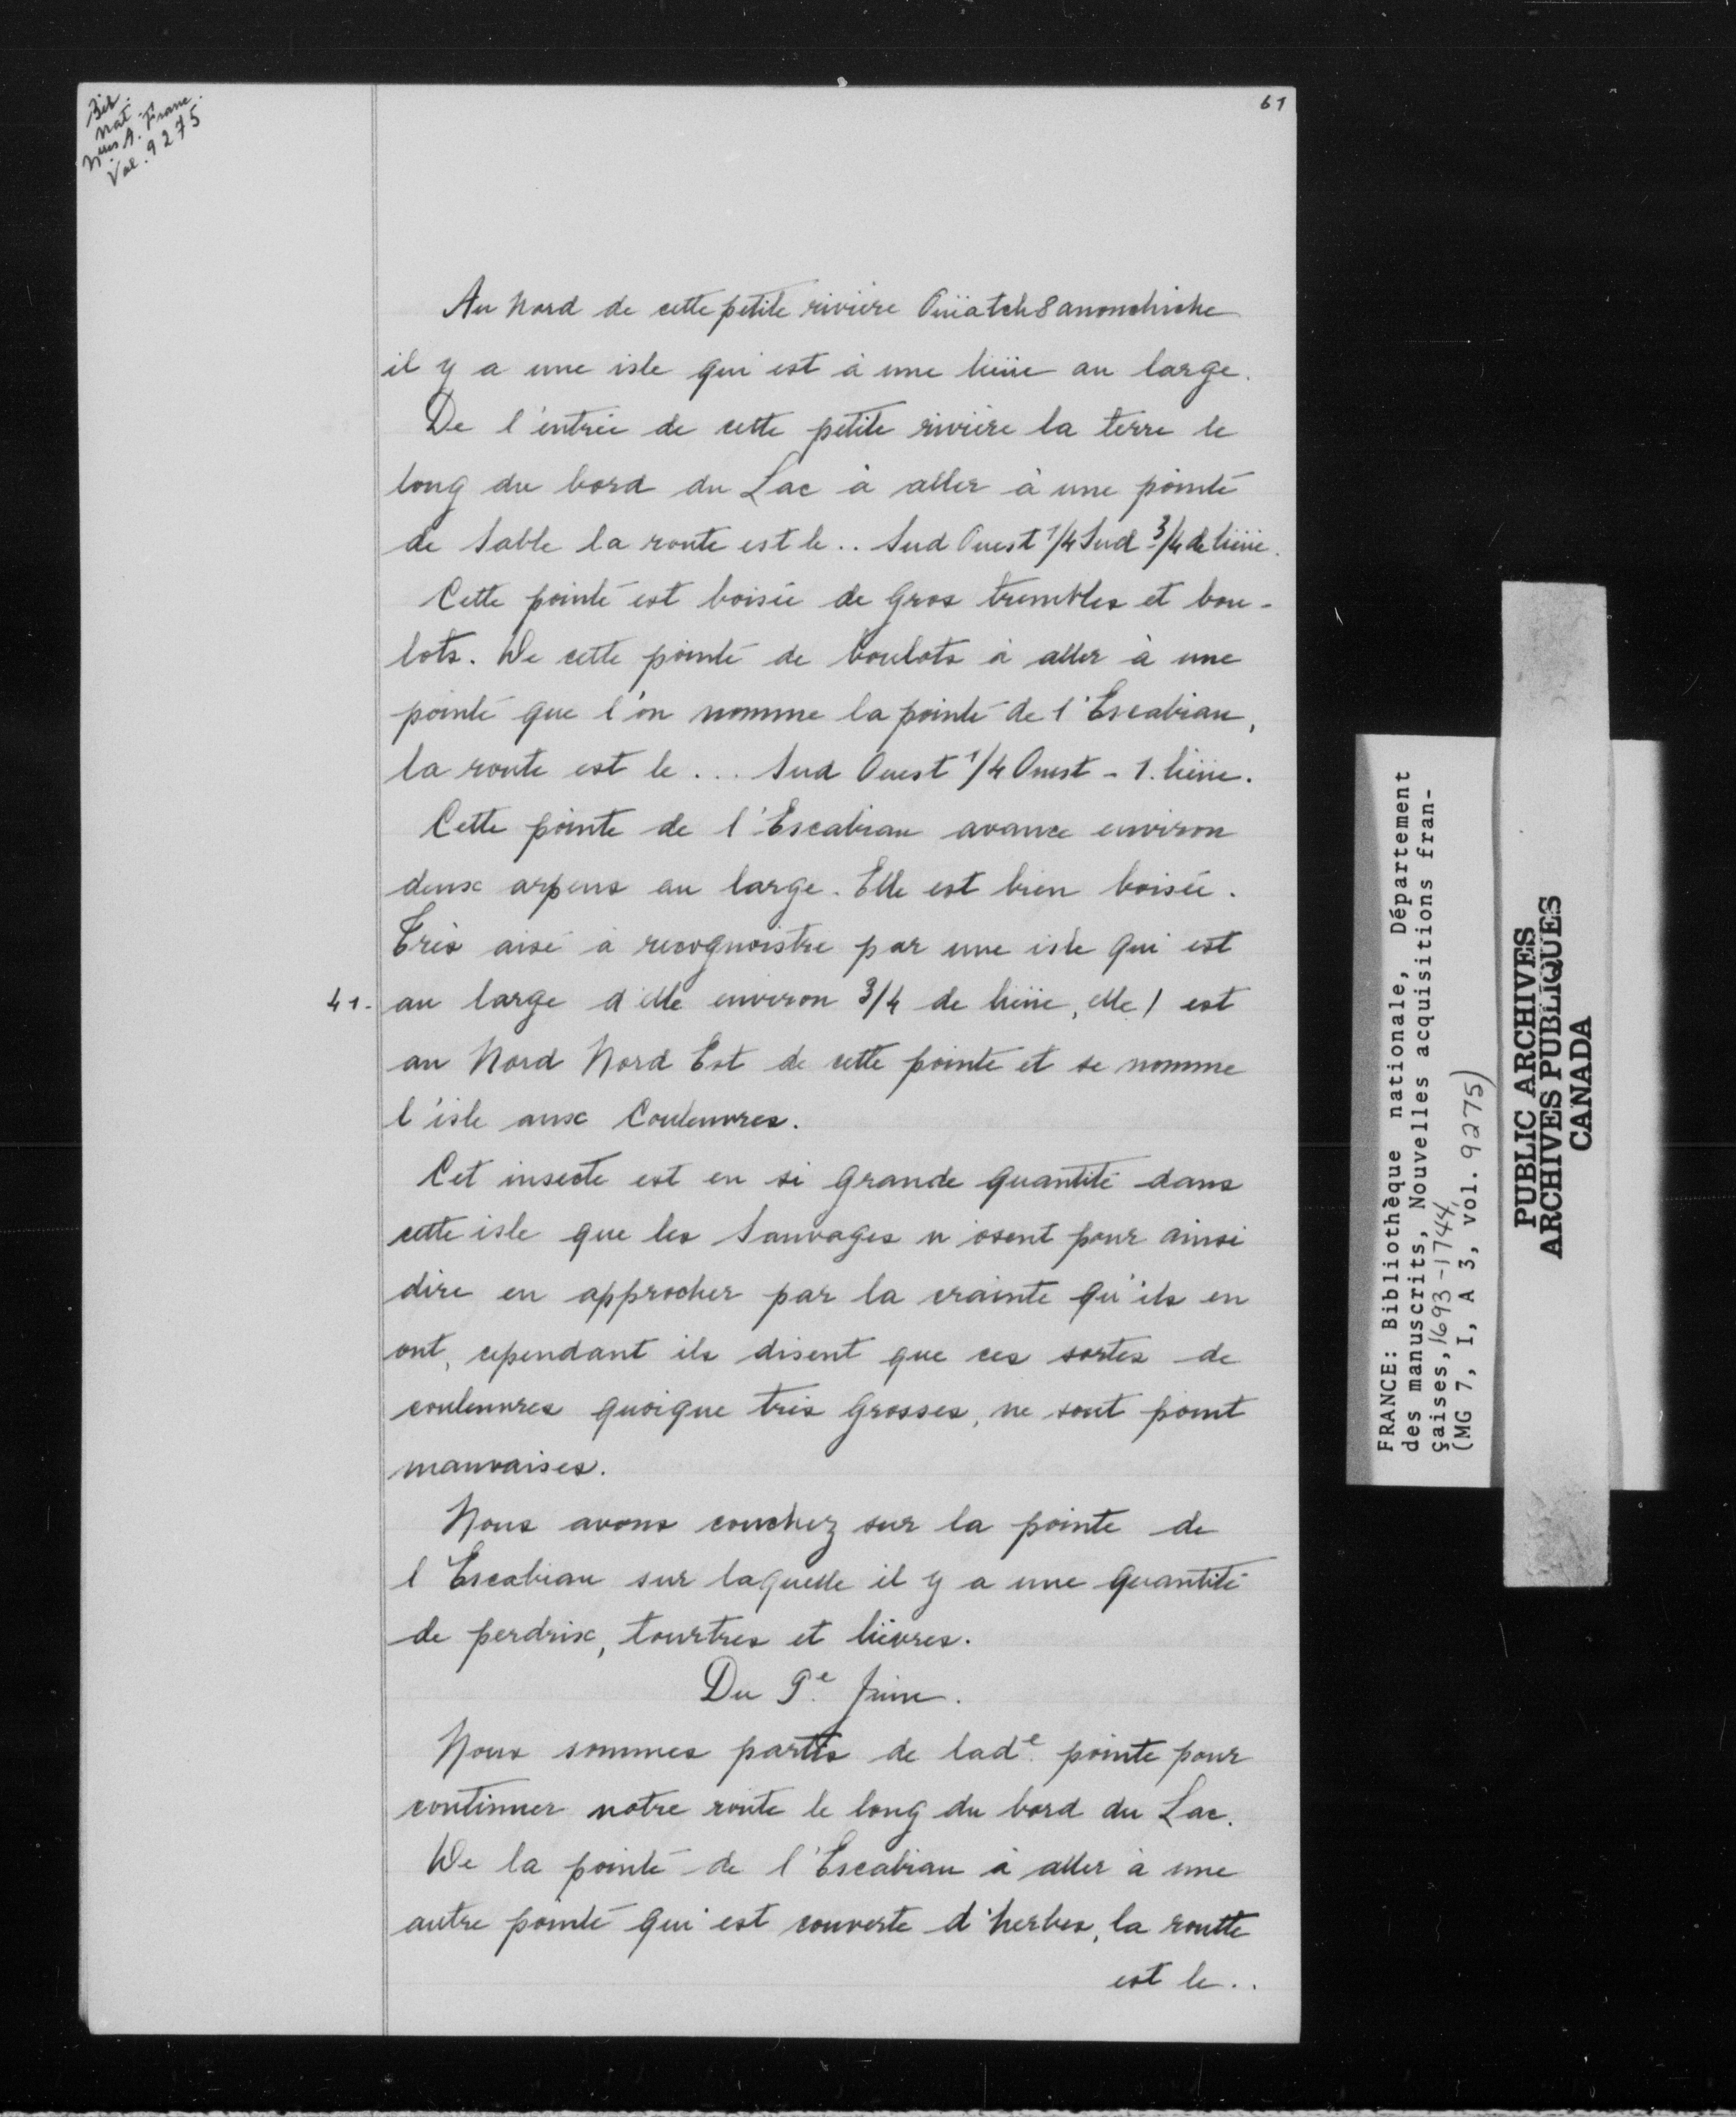 Bib.
nat.
Nlles A. Franc.
Vol. 9275
61
Au Nord de cette petite rivière Ouiatch8anonchiche
il y a une isle qui est à une lieüe au large.
De l'entrée de cette petite rivière la terre le
long du bord du Lac à aller à une pointe
de Sable la route est le .. Sud Ouest 1/4 Sud 3/4 de lieüe.
Cette pointe est boisée de Gros trembles et bou-
lots. De cette pointe de boulots à aller à une
pointe que l'on nomme la pointe de l'Escabiau,
la route est le ... Sud Ouest 1/4 Ouest - 1. lieüe.
Cette pointe de l'Escabiau avance environ
deux arpens au large. Elle est bien boisée.
Très aisé à recognoistre par une isle qui est
41. au large d'elle environ 3/4 de lieüe, elle / est
au Nord Nord Est de cette pointe et se nomme
l'isle aux Couleuvres.
Cet insecte est en si grande quantité dans
cette isle que les Sauvages n'osent pour ainsi
dire en approcher par la crainte qu'ils en
ont, cependant ils disent que ces sortes de
couleuvres quoique très grosses, ne sont point
mauvaises.
Nous avons couchez sur la pointe de
l'Escabiau sur laquelle il y a une quantité
de perdrix, tourtres et lièvres.
Du 9e. Juin.
Nous sommes partis de lade. pointe pour
continuer notre route le long du bord du Lac.
De la pointe de l'Escabiau à aller à une
autre pointe qui est couverte d'herbes, la routte
est le ..
FRANCE: Bibliothèque nationale, Département
des manuscrits, Nouvelles acquisitions fran-
çaises, 1693-1744,
(MG 7, I, A 3, vol. 9275)
PUBLIC ARCHIVES
ARCHIVES PUBLIQUES
CANADA